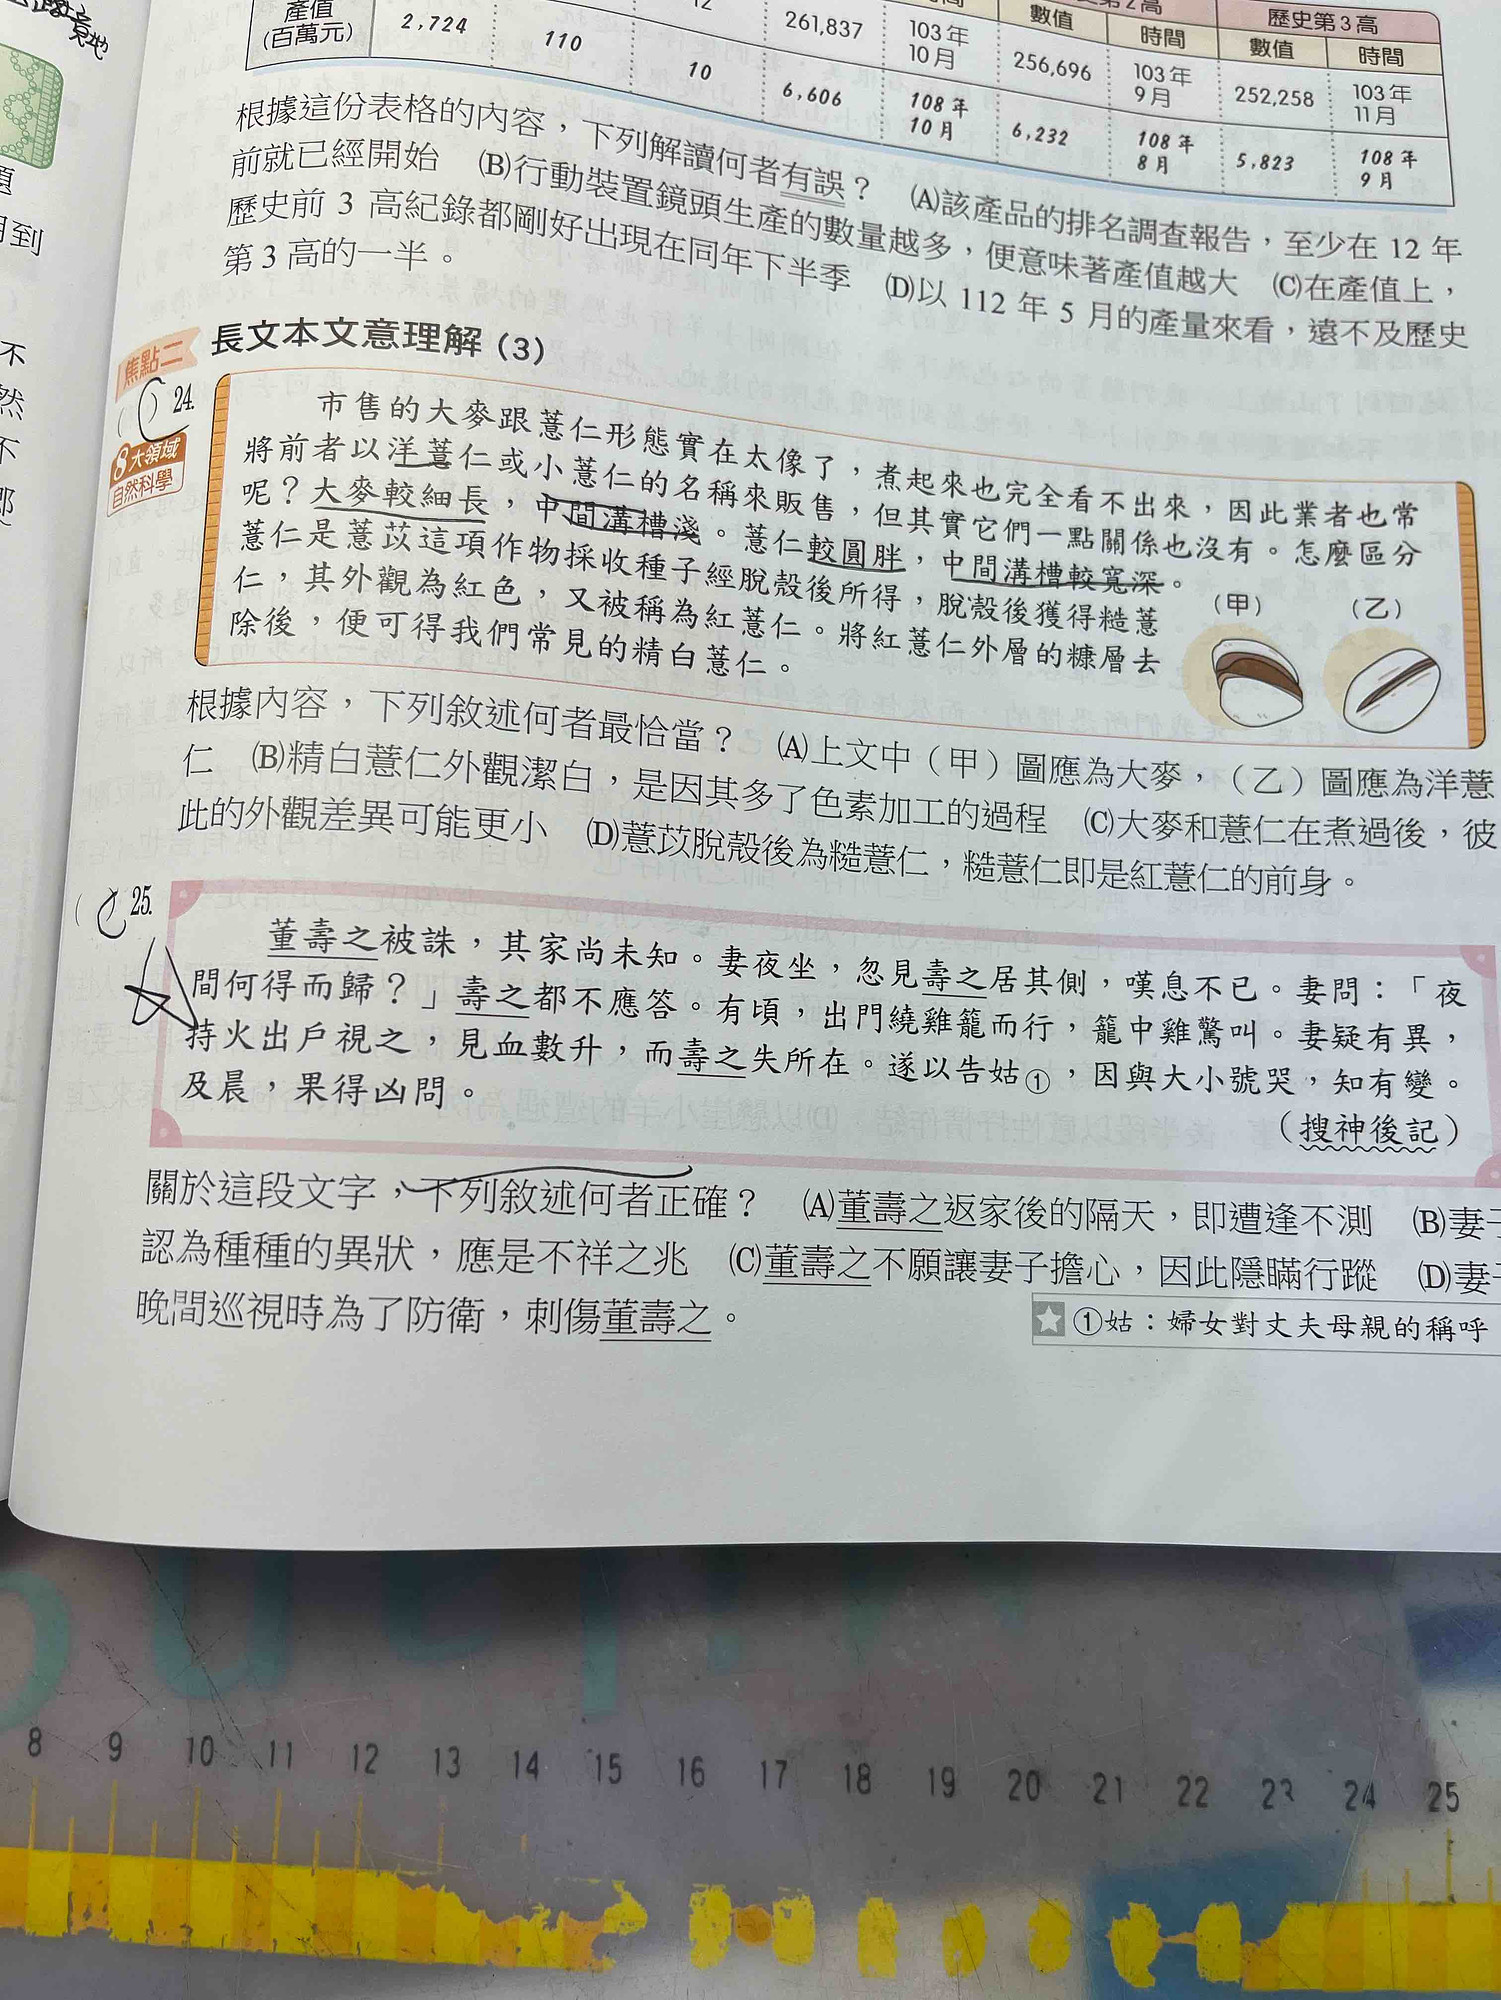 產值
(百萬元)
2,724
110
12
10
261,837
6,606
103年
10月
108年
10月
數值
256,696
6,232
時間
103年
9月
108年
8月
歷史第3高
數值
252,258
5,823
時間
103年
11月
108年
9月
根據這份表格的內容,下列解讀何者有誤? (A)該產品的排名調查報告,至少在 12 年
前就已經開始 (B)行動裝置鏡頭生產的數量越多,便意味著產值越大 (C)在產值上,
歷史前 3 高紀錄都剛好出現在同年下半季 (D)以 112 年 5 月的產量來看,遠不及歷史
第 3 高的一半。
焦點二 長文本文意理解(3)
24.
8大領域
自然科學
市售的大麥跟薏仁形態實在太像了,煮起來也完全看不出來,因此業者也常
將前者以洋薏仁或小薏仁的名稱來販售,但其實它們一點關係也沒有。怎麼區分
呢?大麥較細長,中間溝槽淺。薏仁較圓胖,中間溝槽較寬深。
薏仁是薏苡這項作物採收種子經脫殼後所得,脫殼後獲得糙薏
仁,其外觀為紅色,又被稱為紅薏仁。將紅薏仁外層的糠層去
除後,便可得我們常見的精白薏仁。
(甲) (乙)
根據內容,下列敘述何者最恰當? (A)上文中(甲)圖應為大麥,(乙)圖應為洋薏
仁 (B)精白薏仁外觀潔白,是因其多了色素加工的過程 (C)大麥和薏仁在煮過後,彼
此的外觀差異可能更小 (D)薏苡脫殼後為糙薏仁,糙薏仁即是紅薏仁的前身。
25.
董壽之被誅,其家尚未知。妻夜坐,忽見壽之居其側,嘆息不已。妻問:「夜
間何得而歸?」壽之都不應答。有頃,出門繞雞籠而行,籠中雞驚叫。妻疑有異,
持火出戶視之,見血數升,而壽之失所在。遂以告姑①,因與大小號哭,知有變。
及晨,果得凶問。
(搜神後記)
關於這段文字,下列敘述何者正確? (A)董壽之返家後的隔天,即遭逢不測 (B)妻子
認為種種的異狀,應是不祥之兆 (C)董壽之不願讓妻子擔心,因此隱瞞行蹤 (D)妻子
晚間巡視時為了防衛,刺傷董壽之。
①姑:婦女對丈夫母親的稱呼
8 9 10 11 12 13 14 15 16 17 18 19 20 21 22 23 24 25